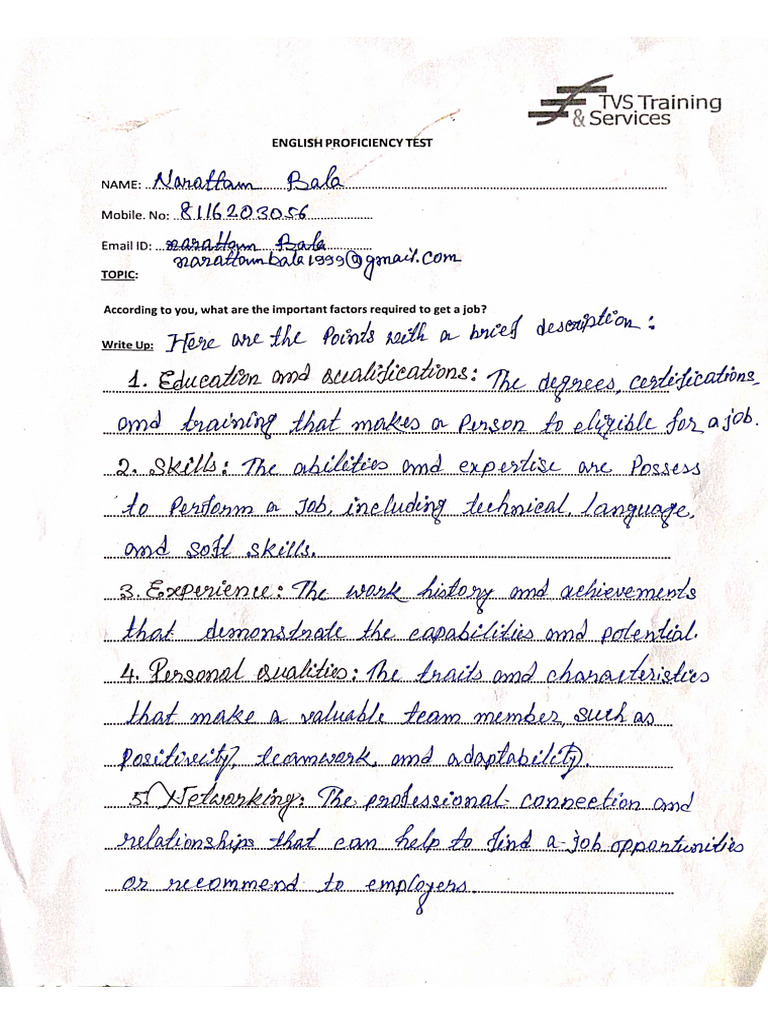 TVS Training
& Services
ENGLISH PROFICIENCY TEST
NAME: Narattam Bala
Mobile. No: 8116203056
Email ID: narattam Bala
narattambala1999@gmail.com
TOPIC:
According to you, what are the important factors required to get a job?
Write Up: Here are the Points with a brief description:
1. Education and qualifications: The degrees, certifications,
and training that makes a Person to eligible for a job.
2. Skills: The abilities and expertise are Possess
to Perform a Job, including technical, language,
and soft skills.
3. Experience: The work history and achievements
that demonstrate the capabilities and potential.
4. Personal qualities: The traits and characteristics
that make a valuable team member, such as
Positivecity, teamwork, and adaptability.
5. Networking: The professional connection and
relationships that can help to find a job opportunities
or recommend to employers.